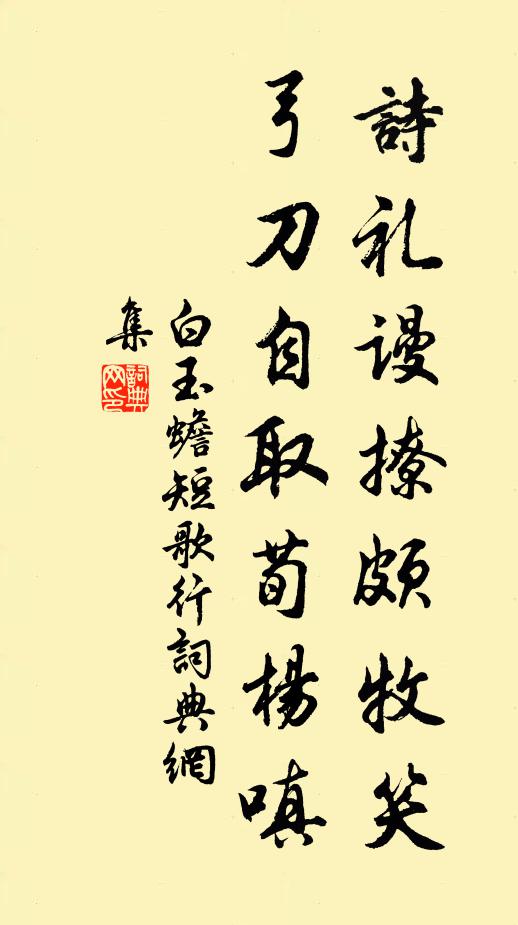 詩礼謾撩頗牧笑
弓刀自取荀楊嗔
白玉蟾短歌行詞典網
集
詞典網印